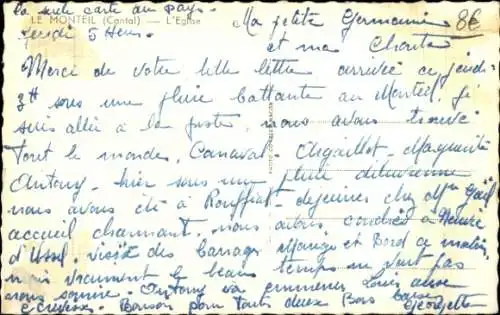 la seule carte au pays.
LE MONTEIL (Cantal) — L'Eglise
Jeudi 5 Heures
Ma petite Germaine
8€
et ma Chante
Merci de votre belle lettre arrivée ce jeudi
sous une pluie battante au Monteil, je
suis allée à la poste, nous avons trouvé
tout le monde, Canaval. Argaillot, Marguerite
Antony - hier sous une pluie diluvienne
nous avons été à Rouffiat - déjeuner chez Mme
accueil charmant, nous avons couché à Neuvic
d'Ussel, visité des barrages Marèges et Bord ce matin,
mais vraiment le beau temps ne suit pas
nous sommes. Antony va emmener Louis aux
écrevisses. Bonsoir pour toutes deux Bons baisers
Georgette